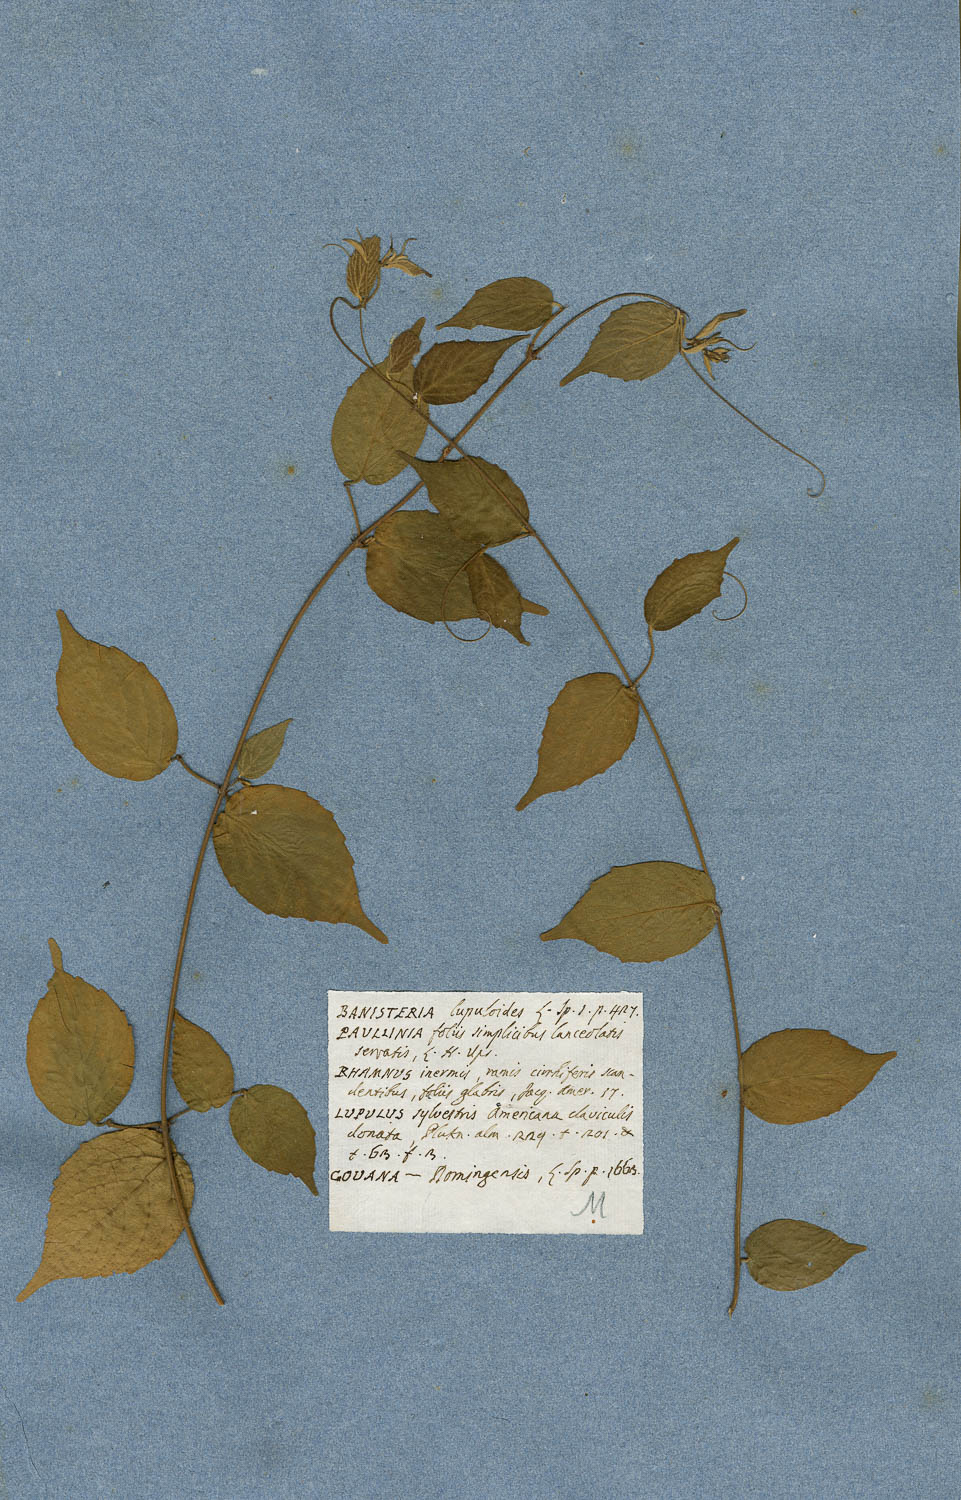 BANISTERIA lupuloides L. Sp. 1. p. 427.
PAULLINIA foliis simplicibus lanceolatis
serratis, L. H. Ups.
RHAMNUS inermis, ramis cirrhiferis scan-
dentibus, foliis glabris, Jacq. Amer. 17.
LUPULUS sylvestris Americana claviculis
donata, Plukn. alm. 229. t. 201. &
t. 63. f. 3.
GOUANA — Domingensis, L. Sp. p. 1663.
M